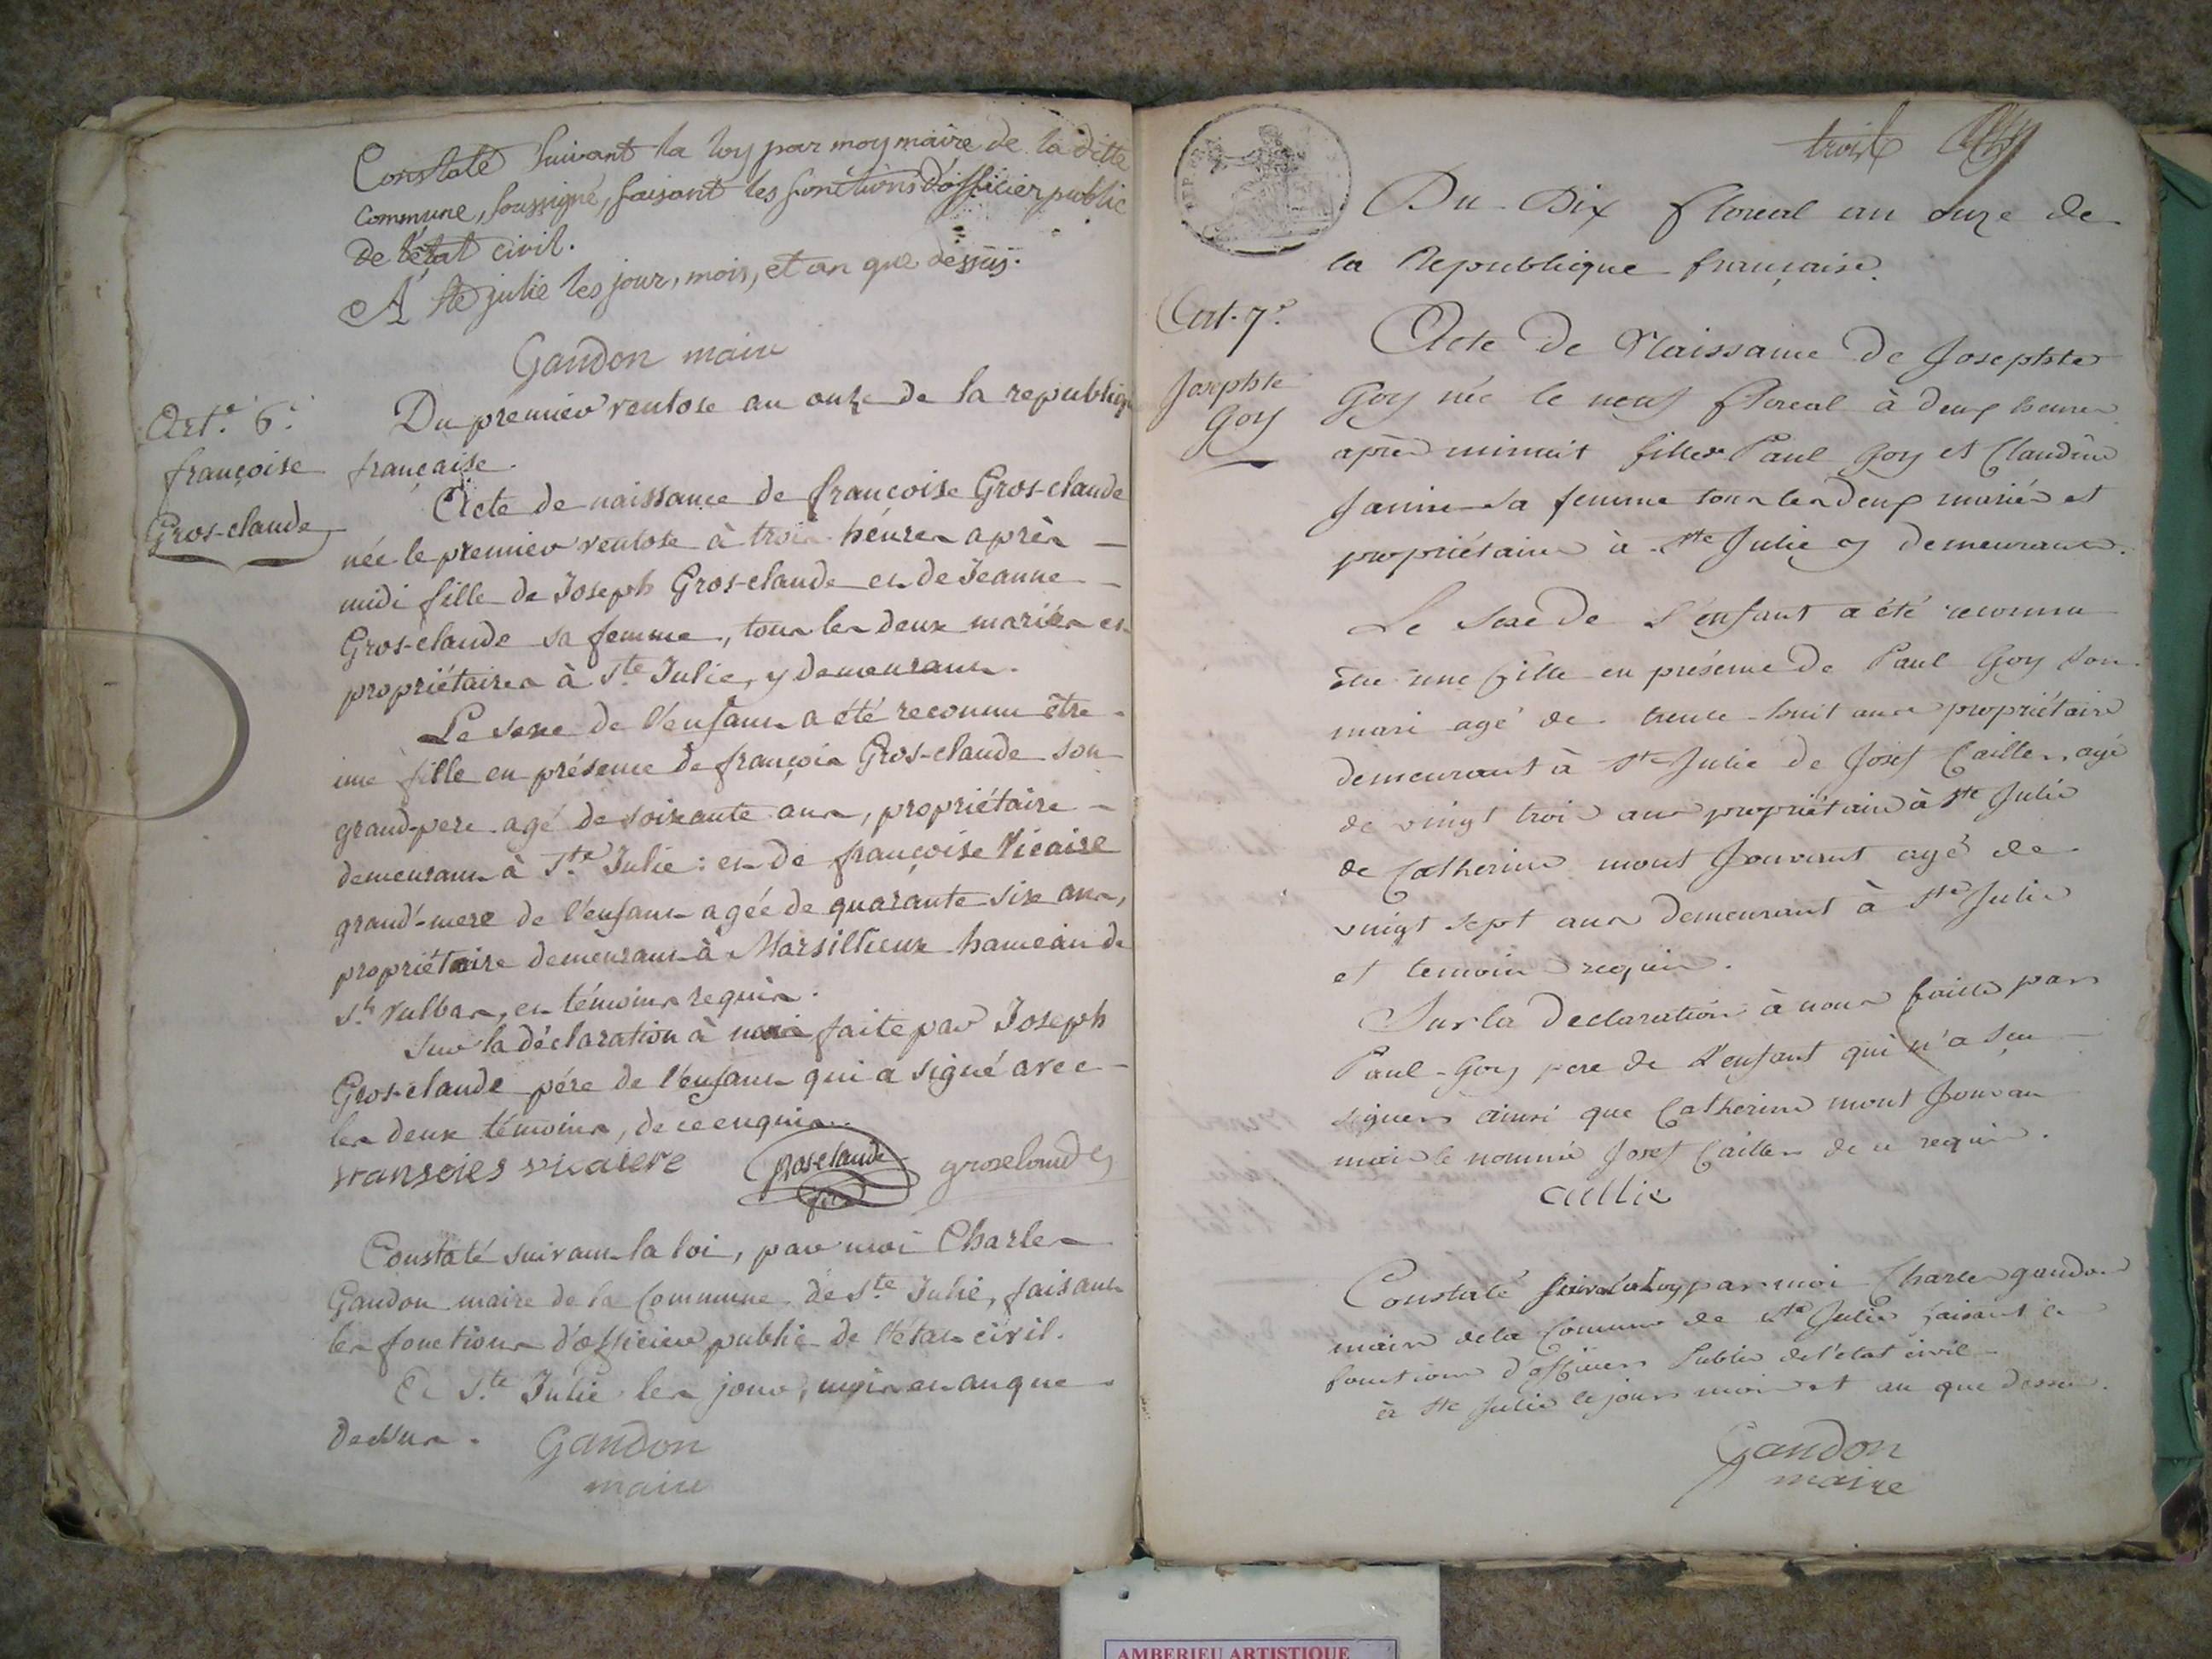 Constaté suivant la loy par moy maire de la ditte
commune, soussigné, faisant les fonctions d'officier public
de l'état civil.
A Ste julie les jour, mois, et an que dessus.
Gandon maire
Art.e 6.e
françoise
Gros-claude
Du premier ventose an onze de la republique
française.
Acte de naissance de françoise Gros-claude
née le premier ventose à trois heures après
midi fille de Joseph Gros-claude et de Jeanne
Gros-claude sa femme, tous les deux mariés et
propriétaires à Ste Julie, y demeurans.
Le sexe de l'enfant a été reconnu être
une fille en présence de françois Gros-claude son
grand-pere agé de soixante ans, propriétaire
demeurant à Ste Julie : et de françoise Vicaire
grand'-mere de l'enfant agée de quarante six ans,
propriétaire demeurant à Marsillieux hameau de
St. Vulbas, et témoins requis.
Sur la déclaration à moi faite par Joseph
Gros-claude pére de l'enfant qui a signé avec
les deux témoins, de ce enquis.
gros-claude
fils
Constaté suivant la loi, par moi Charles
Gandon maire de la Commune de Ste Julie, faisant
les fonctions d'officier public de l'état civil.
A Ste Julie les jour, mois et an que
dessus. Gandon
maire
trois
REP.
Du Dix floreal an onze de
la Republique française.
Art. 7.e
Josephte
Goy
Acte de Naissance de Josephte
Goy née le neuf floreal à deux heures
après minuit fille Paul Goy et Claudine
Janin sa femme tous les deux mariés et
propriétaires à Ste Julie y demeurans.
Le sexe de l'enfant a été reconnu
être une fille en présence de Paul Goy son
mari agé de trente huit ans propriétaire
demeurant à Ste Julie de Josef Cailler agé
de vingt trois ans propriétaire à Ste Julie
de Catherine mont Jouvant agé de
vingt sept ans demeurant à Ste Julie
et temoins requis.
Sur la declaration à nous faitte par
Paul Goy pere de l'enfant qui n'a sçu
signer ainsi que Catherine mont Jouvan
mais le nommé Josef Cailler de ce requis.
Constaté suivant la loy par moi Charles gandon
maire de la Commune de Ste Julie faisant les
fonctions d'officier Public de l'etat civil
à Ste Julie le jours mois et an que dessus.
Gandon
maire
AMBERIEU ARTISTIQUE